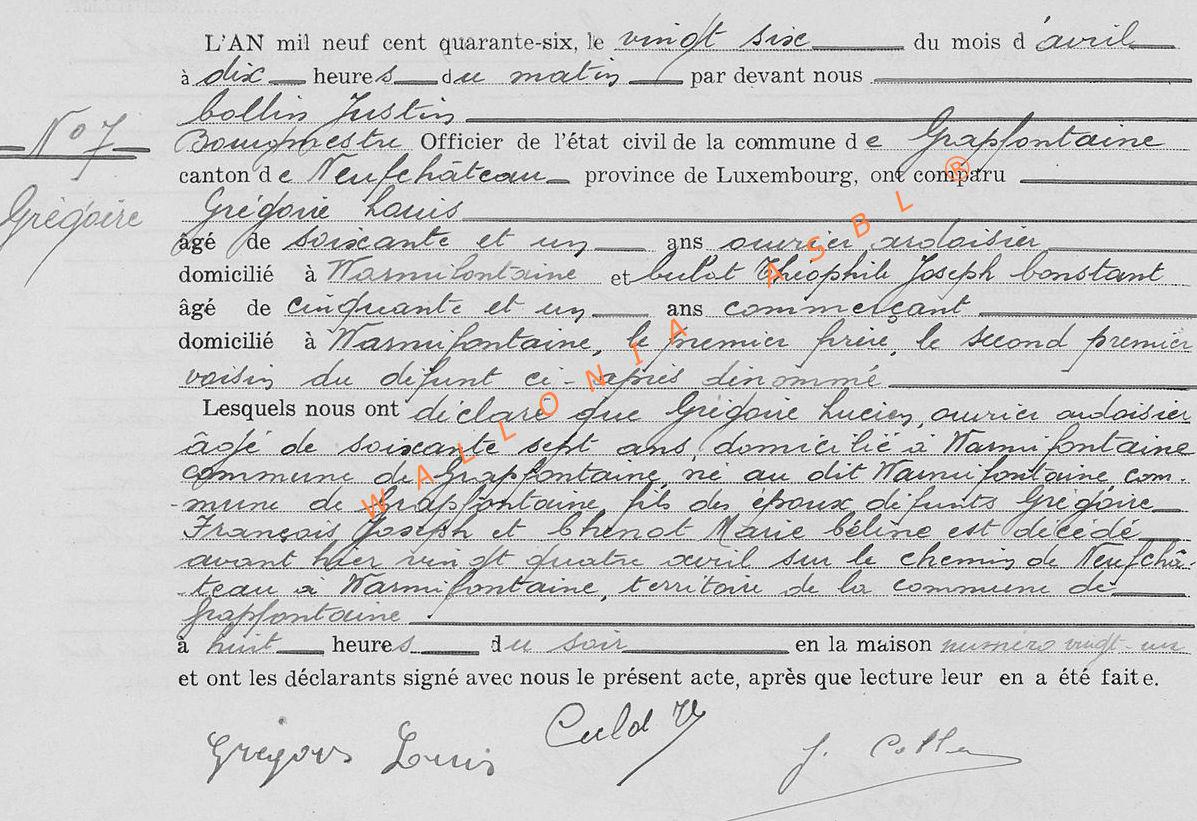 L'AN mil neuf cent quarante-six, le vingt six du mois d'avril
à dix heures du matin par devant nous
Collin Justin
N° 7
Bourgmestre Officier de l'état civil de la commune de Grapfontaine
canton de Neufchâteau province de Luxembourg, ont comparu
Grégoire
Grégoire Louis
âgé de soixante et un ans ouvrier ardoisier
domicilié à Warmifontaine et Théophile Joseph Constant
âgé de cinquante et un ans commerçant
domicilié à Warmifontaine, le premier frère, le second premier
voisin du défunt ci-après dénommé
Lesquels nous ont déclaré que Grégoire Lucien, ouvrier ardoisier
âgé de soixante sept ans, domicilié à Warmifontaine
commune de Grapfontaine, né au dit Warmifontaine com-
-mune de Grapfontaine, fils des époux défunts Grégoire
François Joseph et Chenot Marie Céline est décédé
avant hier vingt quatre avril sur le chemin de Neufchâ-
-teau à Warmifontaine, territoire de la commune de
Grapfontaine
à huit heures du soir en la maison numéro vingt-un
et ont les déclarants signé avec nous le présent acte, après que lecture leur en a été faite.
Louis
J. Collin
WALLONIA ASBL ®